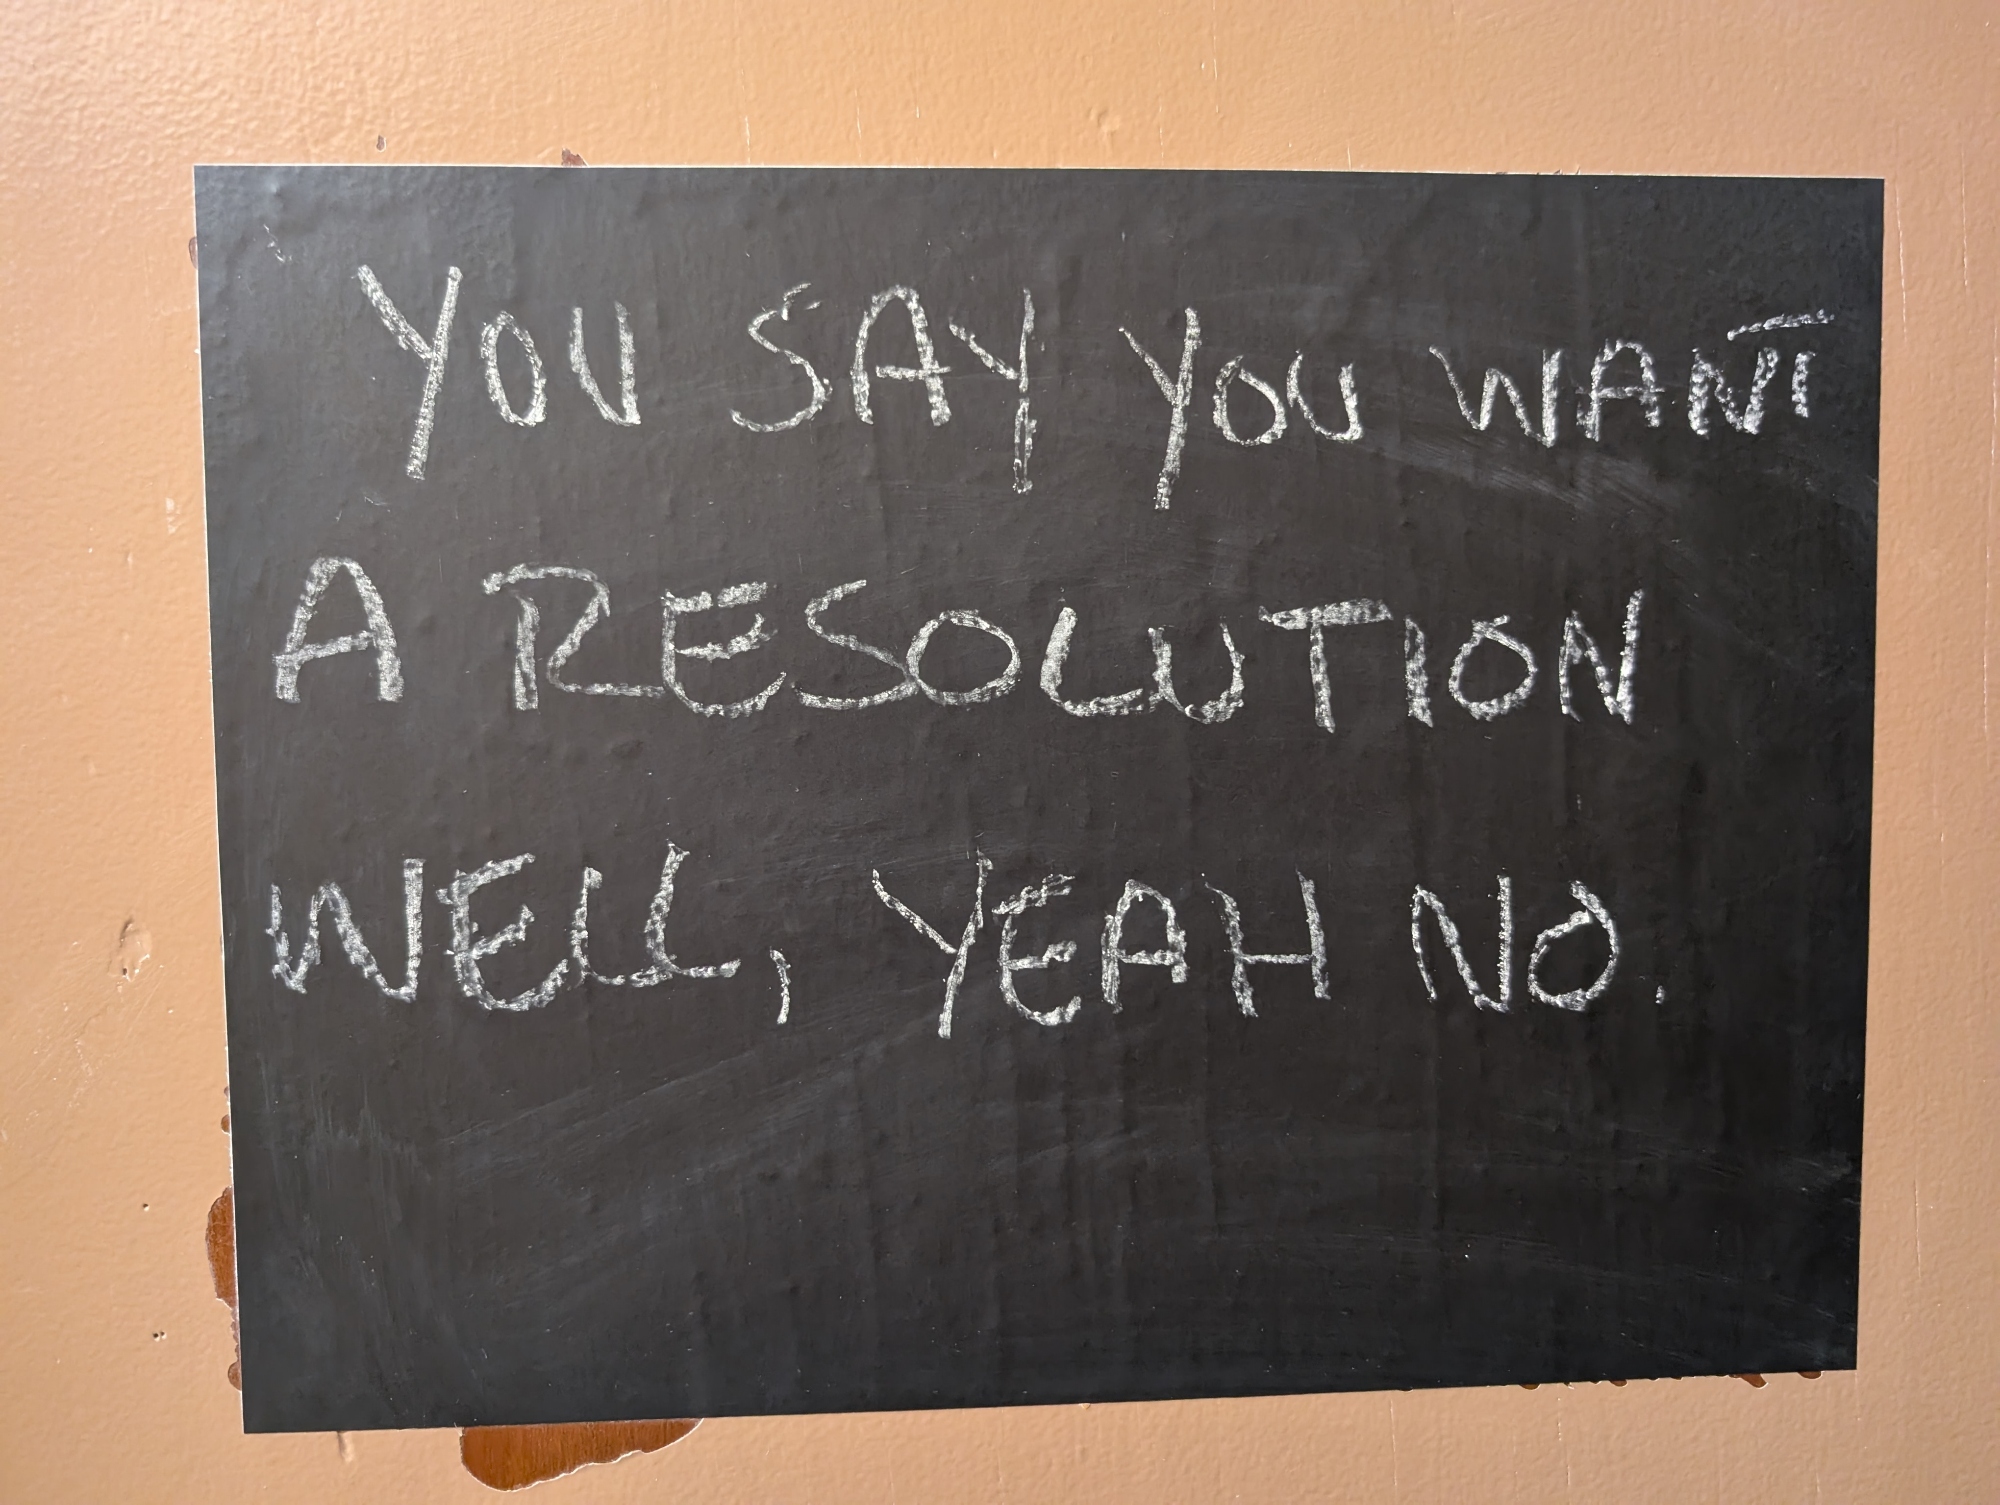 YOU SAY YOU WANT
A RESOLUTION
WELL, YEAH NO.